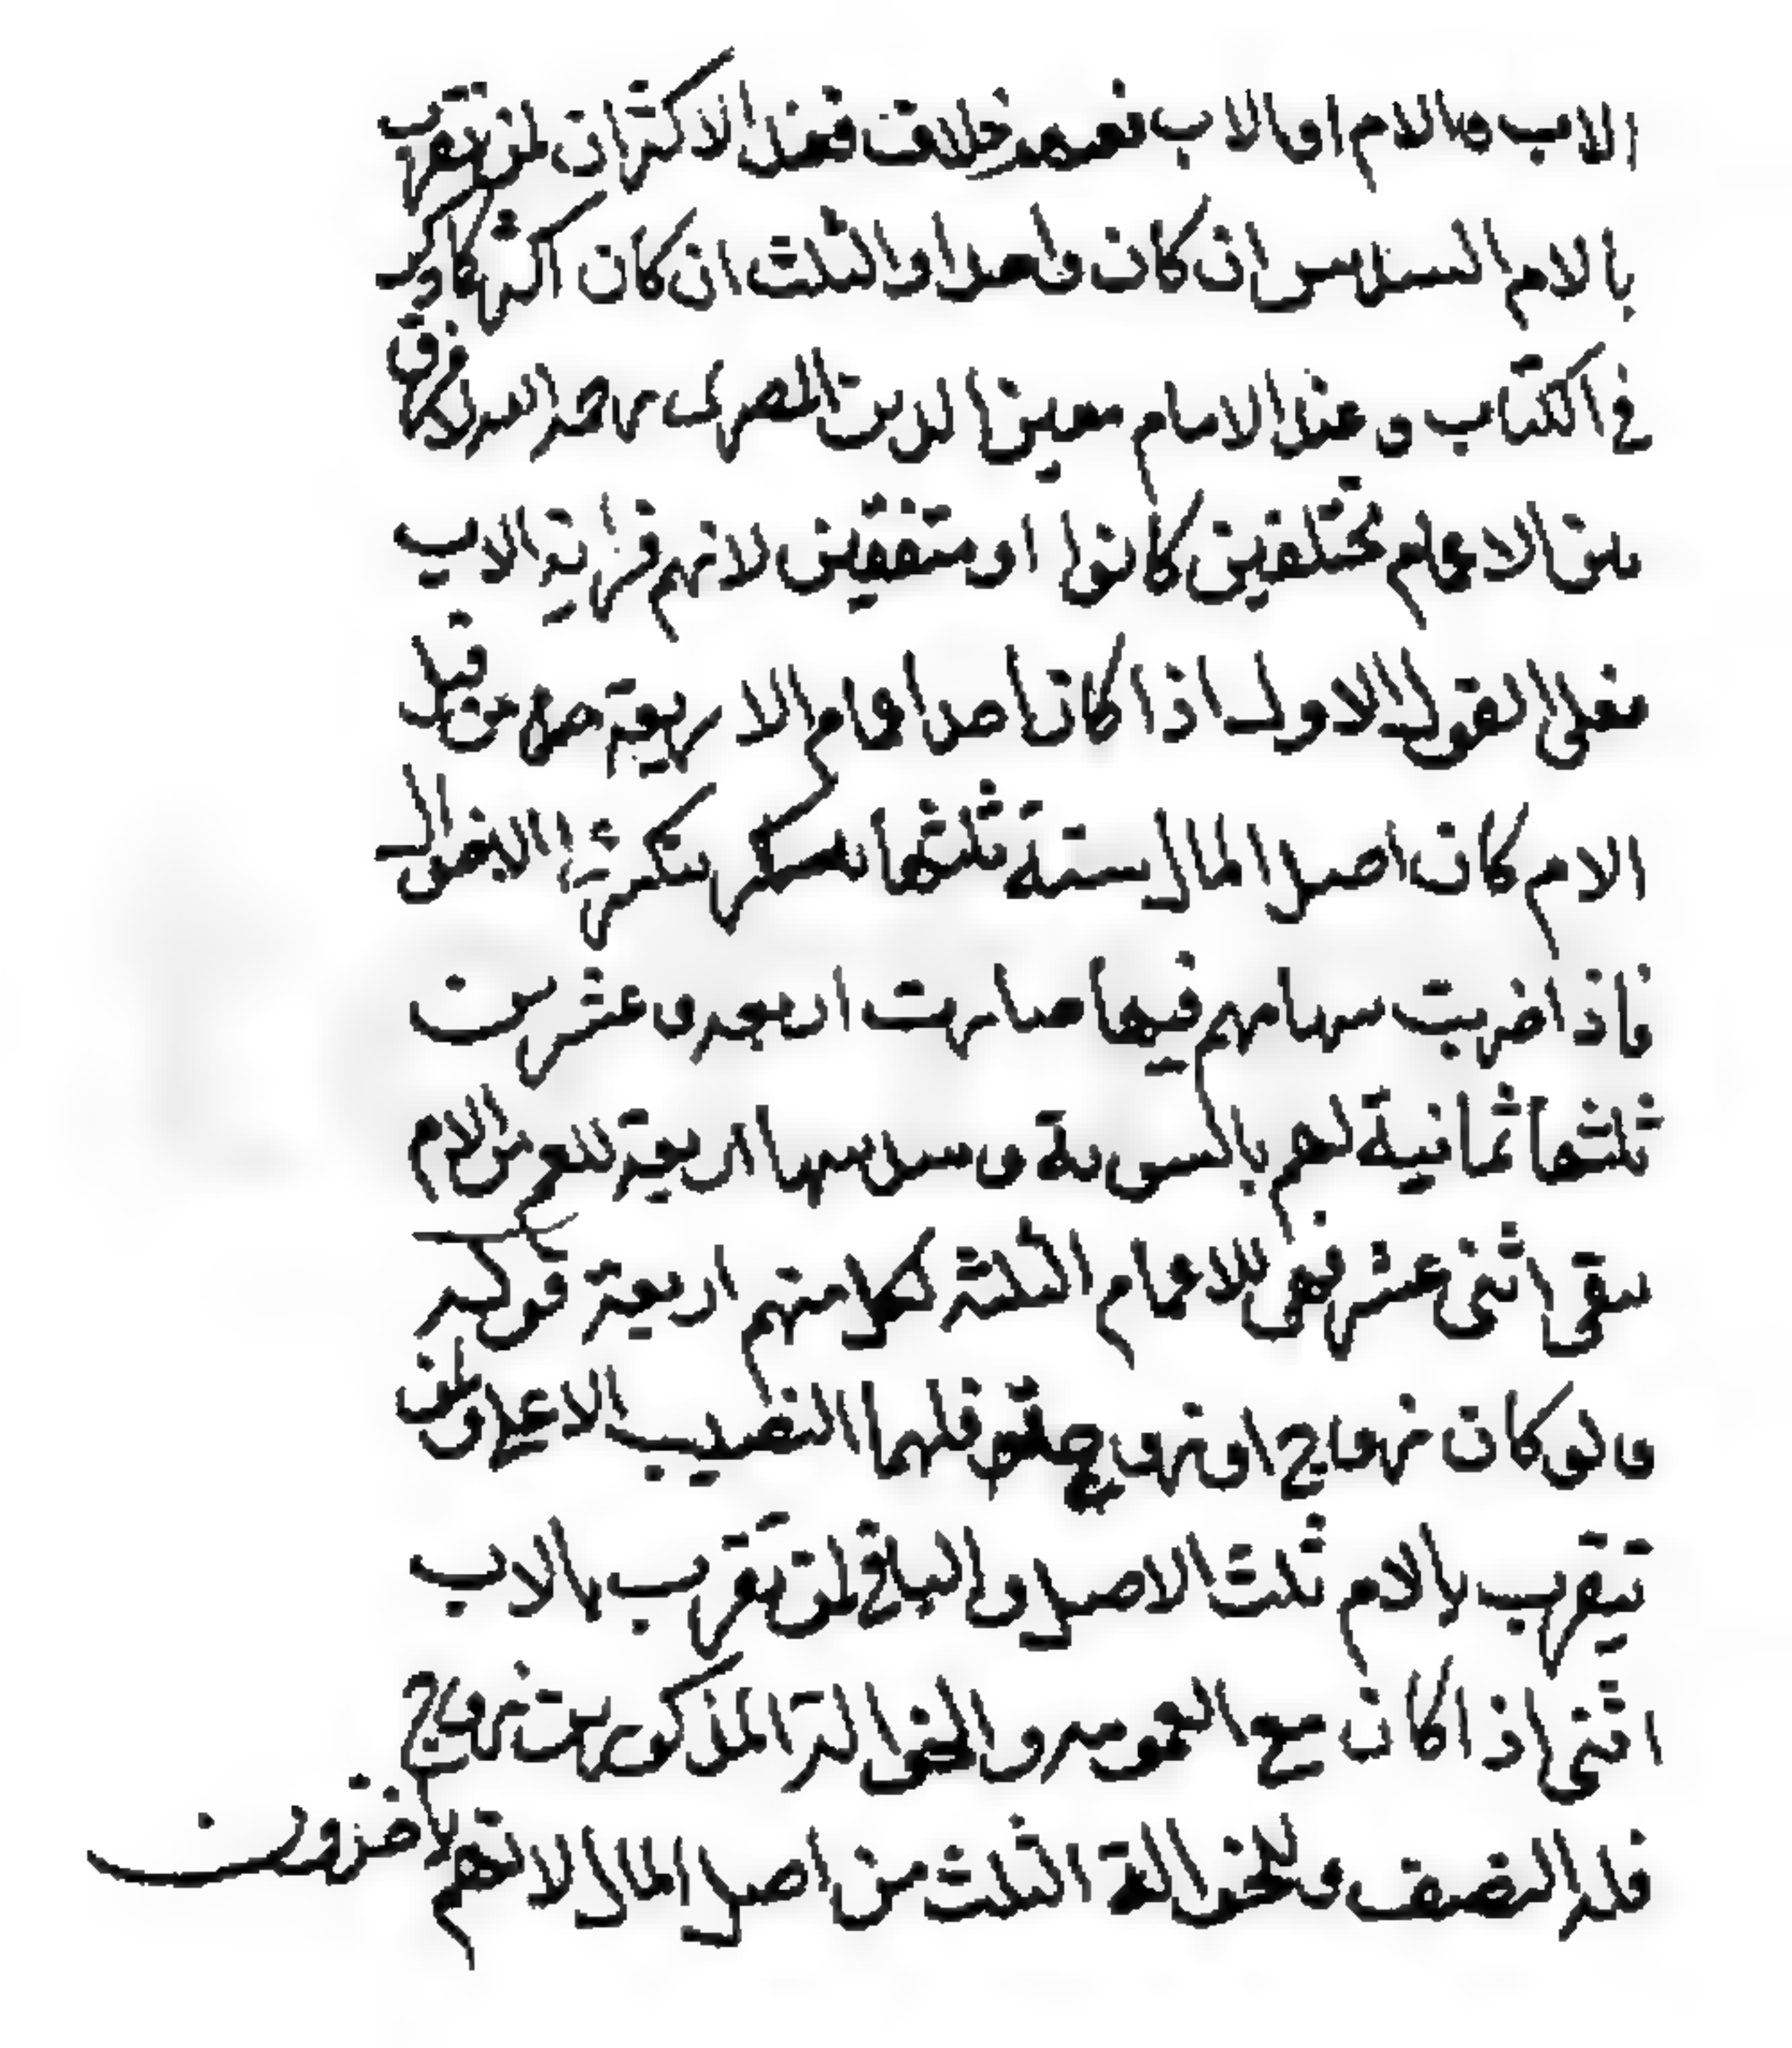 الاب والام او الاب نفيه خلاف فعند الاكثر ان لمن تقرب
بالام السدس ان كان واحدا والثلث ان كان اكثر كما ذكر
في الكتاب وعند الامام معين الدين المصرى رحمه الله لا فرق
بين الاعمام مختلفين كانوا او متفقين لانهم قرابة الاب
فعلى القول الاول اذا كان احد اعمام الاربعة من قبل
الام كان اصل المال ستة ثلثها تنكسر الاخوال
فاذا ضربت سهامهم فيها صارت اربعة وعشرين
ثلثها ثمانية لهم بالسوية وسدسها اربعة للعم من الام
يبقى اثنى عشر فهى للاعمام الثلثة كلا منهم اربعة قوله
ولو كان زوج او زوجة فلهما النصيب الاعلى ولمن
يتقرب بالام ثلث الاصل والباقي لمن تقرب بالاب
انتهى اذا كان مع العمومه والخوالة المذكورين زوج
فله النصف وللخوالة الثلث من اصل المال لانهم لا